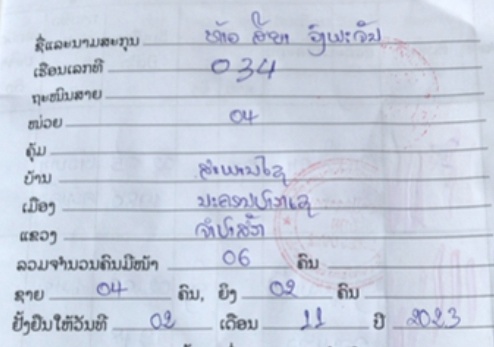 ຊື່ແລະນາມສະກຸນ ທ້າວ
ເຮືອນເລກທີ 034
ຖະໜົນສາຍ
ໜ່ວຍ 04
ຄຸ້ມ
ບ້ານ ສະພານໄຊ
ເມືອງ ນະຄອນປາກເຊ
ແຂວງ ຈຳປາສັກ
ລວມຈຳນວນຄົນມີໜ້າ 06 ຄົນ
ຊາຍ 04 ຄົນ, ຍິງ 02 ຄົນ
ຢັ້ງຢືນໃຫ້ວັນທີ 02 ເດືອນ 11 ປີ 2023